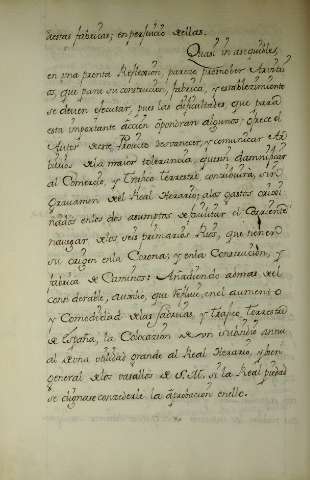 destas fabricas; en perjuicio dellas.
Quasi inasequibles,
en una pronta Reflexion, parece promober Arvitri
os, que para su construcion, fabrica, y establezimiento
se deven ejecutar, pues las dificultades que para
esta importante accion opondran algunos; ofrece el
Autor deste Proiecto desvanecer, y comunicar Ar
bitrios de la maior tolerancia, que sin damnificar
al Comercio, y Trafico terrestre, contribuira, sin
gravamen del Real Herario; a los gastos origi
nados en los dos asumptos de facilitar el Corriente
navegar de los seis primarios Rios, que tienen
su origen en la Corona; y en la Construcion, y
fabrica de Caminos: Añadiendo ademas del
considerable, auxilio, que se sigue, en el aumento
y Comodidad de las fabricas, y trafico terrestre
de España, la Colocazion de un subsidio annu
al de una utilidad grande al Real Herario, y bien
general de los vasallos de S. M. si la Real piedad
se dignase concederle la aprobacion en ello.